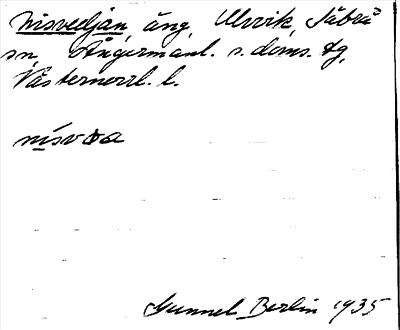 Nisvedjan, äng, Ulvvik, Säbrå
sn, Ångermanl. s. doms. tg,
Västernorrl. l.
nisvea
Gunnel Berlin 1935